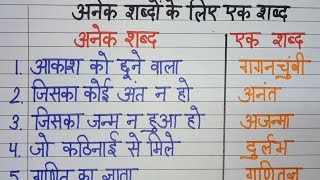 अनेक शब्दों के लिए एक शब्द
अनेक शब्द एक शब्द
1. आकाश को छूने वाला गगनचुंबी
2. जिसका कोई अंत न हो अनंत
3. जिसका जन्म न हुआ हो अजन्मा
4. जो कठिनाई से मिले दुर्लभ
5. गणित का ज्ञाता गणितज्ञ